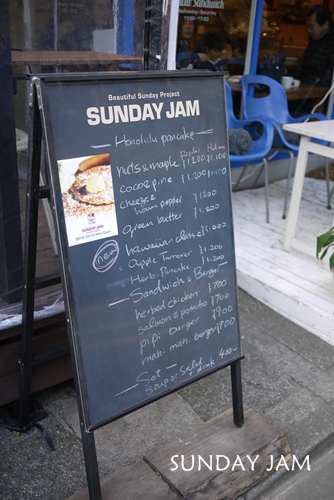 Beautiful Sunday Project
SUNDAY JAM
Honolulu pancake
nuts & maple ¥1200 ¥1,100
coco & pine ¥1,200 ¥1,100
cheese &
ham pepper 1,200
green butter 1,200
new
hawaiian classic 1,000
Apple Turnover ¥1,200
Herb Pancake ¥1,200
Sandwich & Burger
herbed chicken ¥700
salmon & potato ¥700
pipi burger ¥900
mahi mahi burger ¥900
Set
Soup or Salad
+ drink 400
SUNDAY JAM
SUNDAY JAM